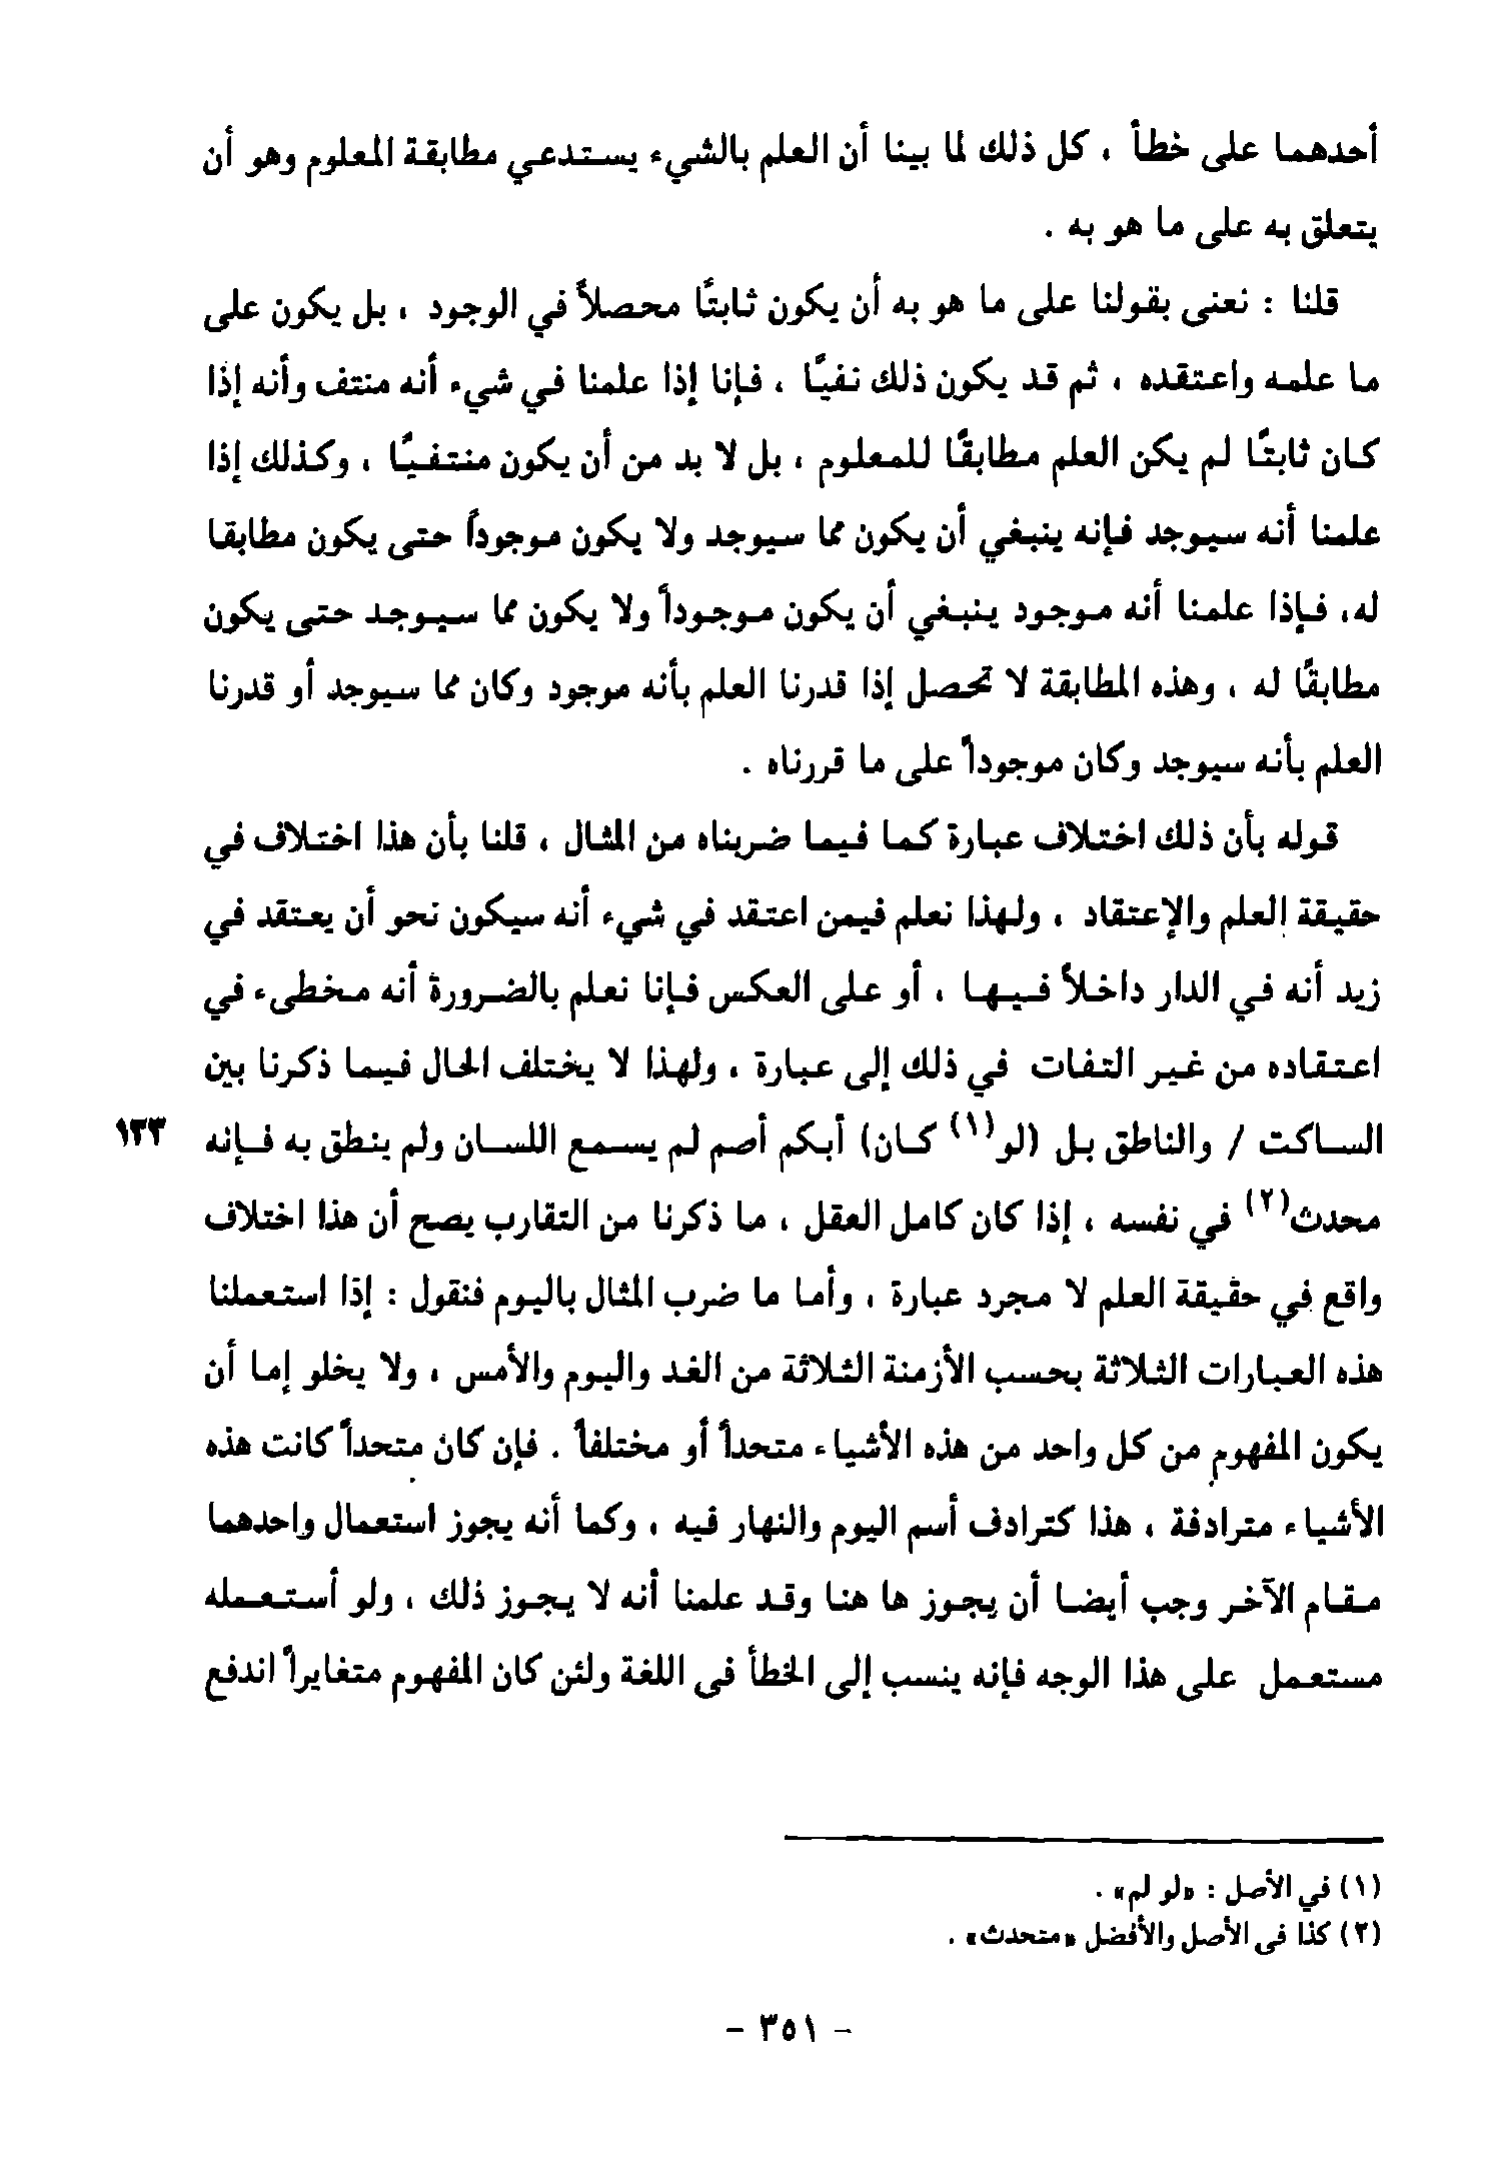 أحدهما على خطأ ، كل ذلك لما بينا أن العلم بالشيء يستدعي مطابقة المعلوم وهو أن
يتعلق به على ما هو به .
قلنا : نعنى بقولنا على ما هو به أن يكون ثابتًا محصلاً في الوجود ، بل يكون على
ما علمه واعتقده ، ثم قد يكون ذلك نفيًا ، فإنا إذا علمنا في شيء أنه منتف وأنه إذا
كان ثابتًا لم يكن العلم مطابقًا للمعلوم ، بل لا بد من أن يكون منتفيًا ، وكذلك إذا
علمنا أنه سيوجد فإنه ينبغي أن يكون مما سيوجد ولا يكون موجوداً حتى يكون مطابقا
له، فإذا علمنا أنه موجود ينبغي أن يكون موجوداً ولا يكون مما سيوجد حتى يكون
مطابقًا له ، وهذه المطابقة لا تحصل إذا قدرنا العلم بأنه موجود وكان مما سيوجد أو قدرنا
العلم بأنه سيوجد وكان موجوداً على ما قررناه .
قوله بأن ذلك اختلاف عبارة كما فيما ضربناه من المثال ، قلنا بأن هذا اختلاف في
حقيقة العلم والإعتقاد ، ولهذا نعلم فيمن اعتقد في شيء أنه سيكون نحو أن يعتقد في
زيد أنه في الدار داخلاً فيها ، أو على العكس فإنا نعلم بالضرورة أنه مخطىء في
اعتقاده من غير التفات في ذلك إلى عبارة ، ولهذا لا يختلف الحال فيما ذكرنا بين
الساكت / والناطق بل (لو(١) كان) أبكم أصم لم يسمع اللسان ولم ينطق به فإنه ١٢٣
محدث(٢) في نفسه ، إذا كان كامل العقل ، ما ذكرنا من التقارب يصح أن هذا اختلاف
واقع في حقيقة العلم لا مجرد عبارة ، وأما ما ضرب المثال باليوم فنقول : إذا استعملنا
هذه العبارات الثلاثة بحسب الأزمنة الثلاثة من الغد واليوم والأمس ، ولا يخلو إما أن
يكون المفهوم من كل واحد من هذه الأشياء متحداً أو مختلفاً . فإن كان متحداً كانت هذه
الأشياء مترادفة ، هذا كترادف أسم اليوم والنهار فيه ، وكما أنه يجوز استعمال واحدهما
مقام الآخر وجب أيضا أن يجوز ها هنا وقد علمنا أنه لا يجوز ذلك ، ولو أستعمله
مستعمل على هذا الوجه فإنه ينسب إلى الخطأ فى اللغة ولئن كان المفهوم متغايراً اندفع
(١) في الأصل : «لو لم» .
(٢) كذا فى الأصل والأفضل «متحدث» .
- ٣٥١ -